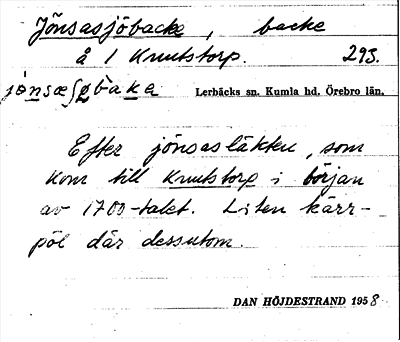 Jönsasjöbacke, backe
å 1 Knutstorp. 293.
Lerbäcks sn. Kumla hd. Örebro län.
Efter jönsasläkten, som
kom till Knutstorp i början
av 1700-talet. Liten kärr-
pöl där dessutom.
DAN HÖJDESTRAND 1958